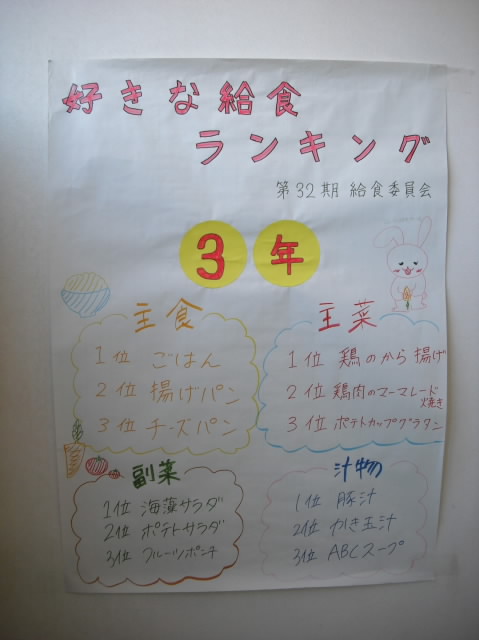 好きな給食
ランキング
第32期 給食委員会
3年
主食
1位 ごはん
2位 揚げパン
3位 チーズパン
主菜
1位 鶏のから揚げ
2位 鶏肉のマーマレード
焼き
3位 ポテトカップグラタン
副菜
1位 海藻サラダ
2位 ポテトサラダ
3位 フルーツポンチ
汁物
1位 豚汁
2位 かき玉汁
3位 ABCスープ